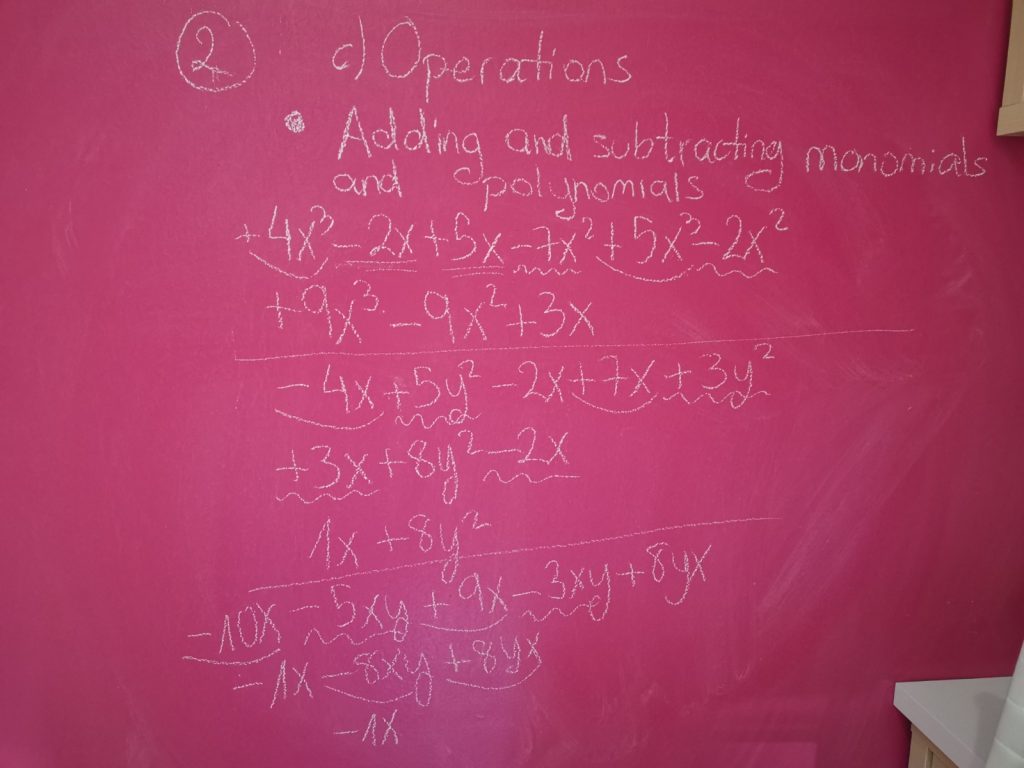 2 c) Operations
• Adding and subtracting monomials
and polynomials
+4x³-2x+5x-7x²+5x³-2x²
+9x³-9x²+3x
-4x+5y²-2x+7x+3y²
+3x+8y²-2x
1x+8y²
-10x-5xy+9x-3xy+8yx
-1x-8xy+8yx
-1x